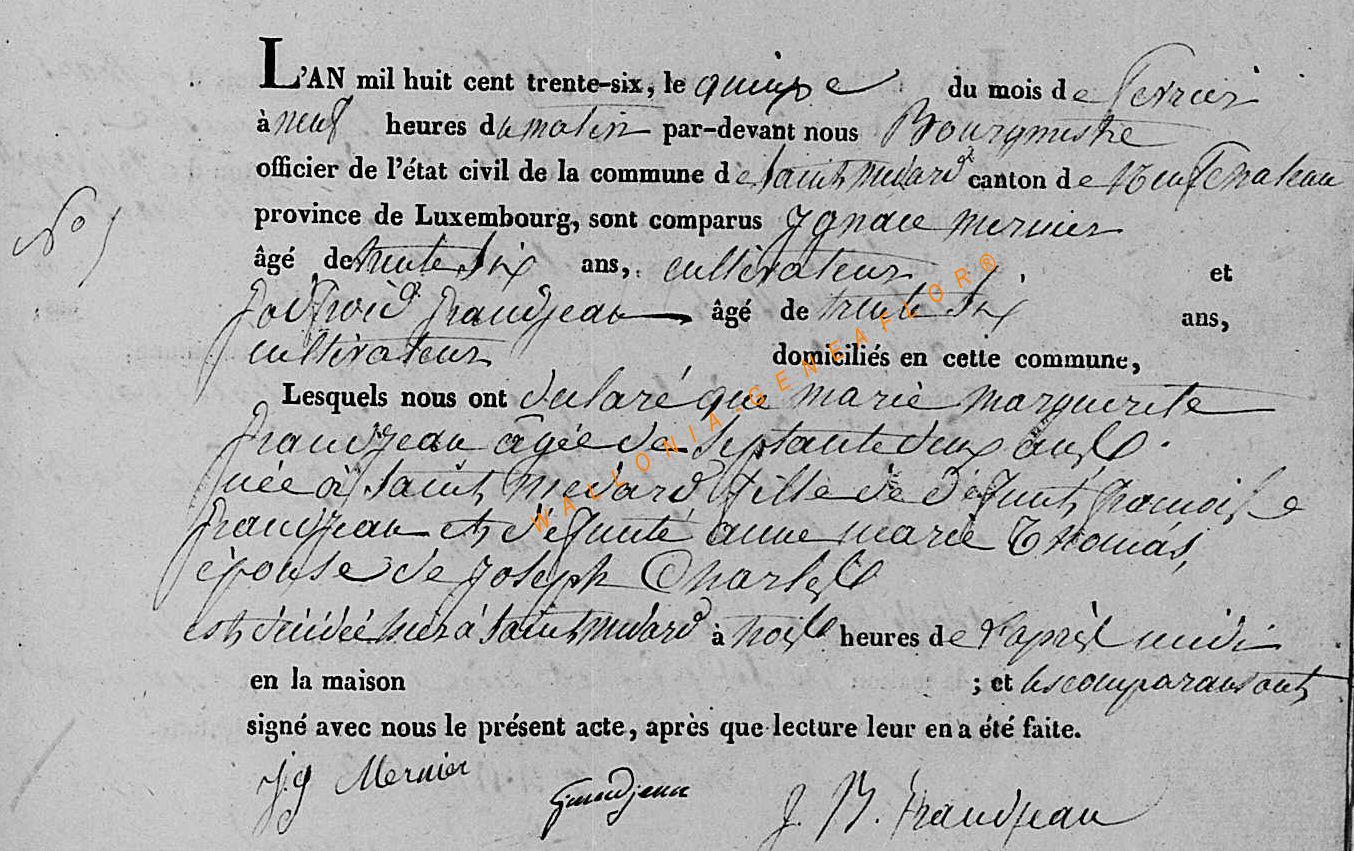 L'AN mil huit cent trente-six, le quinze du mois de fevrier
à neuf heures du matin par-devant nous Bourgmestre
officier de l'état civil de la commune de Saint Médard canton de Neufchateau
province de Luxembourg, sont comparus Ignace Mernier
N° 5
âgé de trente six ans, cultivateur et
Godfroid Grandjean âgé de trente six ans,
cultivateur domiciliés en cette commune,
Lesquels nous ont déclaré que marie marguerite
Grandjean agée de septante deux ans
née à Saint Médard fille de défunt francois
Grandjean et défunte anne marie Thomas,
épouse de Joseph Charles
est décédée hier à Saint Médard à trois heures de l'après midi
en la maison ; et les comparans ont
signé avec nous le présent acte, après que lecture leur en a été faite.
J.g Mernier Grandjean J. B. Grandjean
WALLONIA-GENEAFLOR®